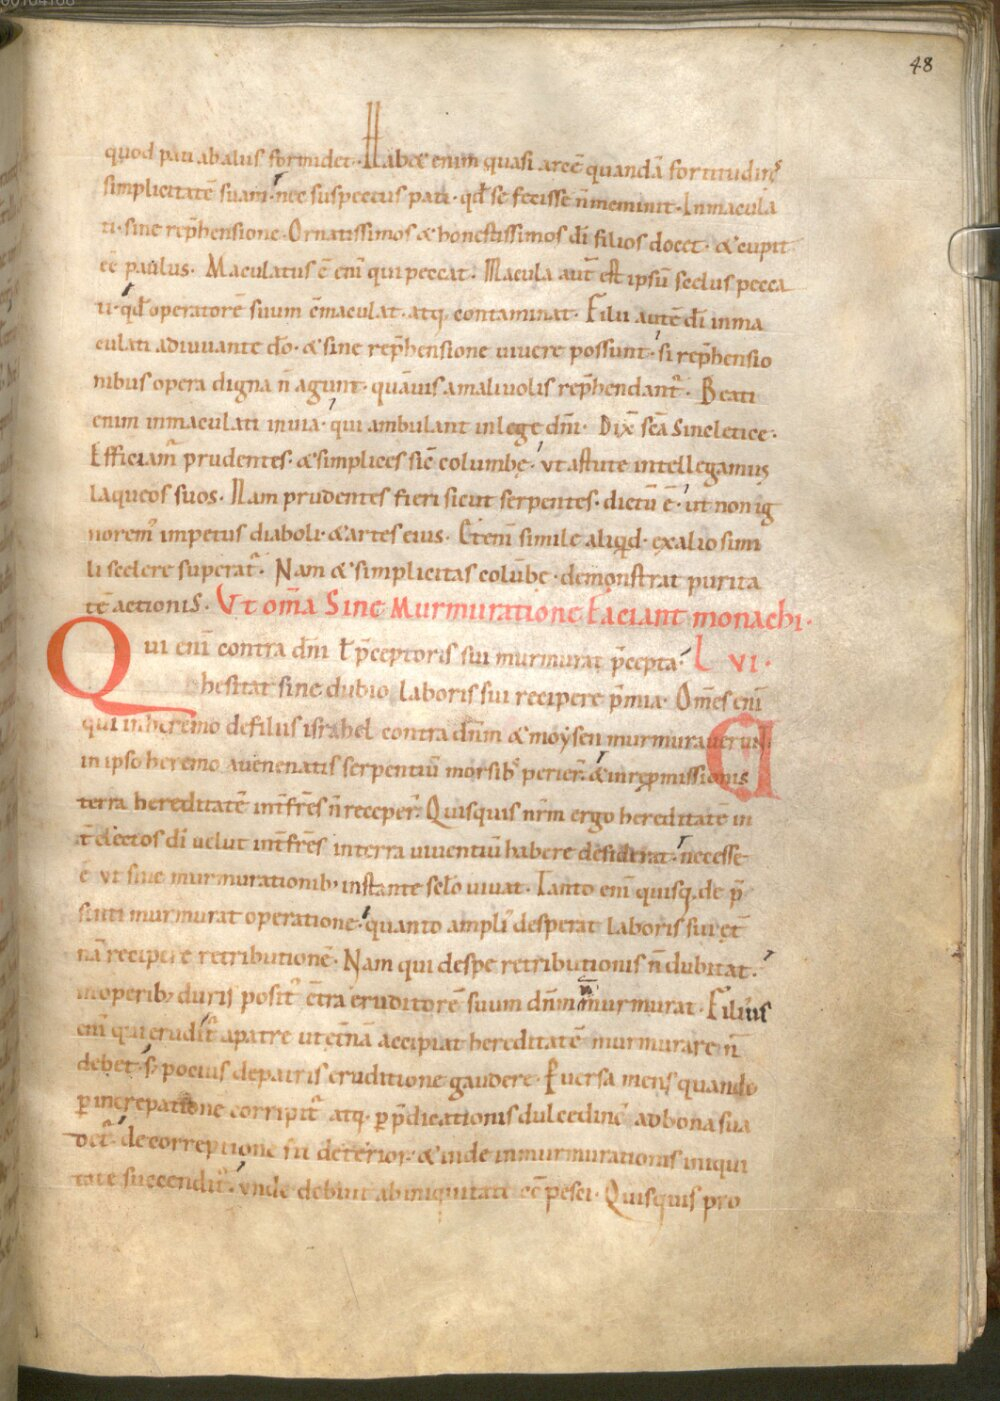 48
quod pati ab aliis formidet. Habet enim quasi arcē quandā fortitudinis
simplicitatē suam. nec suspectus pati. qđ se fecisse n̄ meminit. Inmacula
ti. sine rep̄hensione. Ornatissimos & honestissimos dī filios docet. & cupit
eē paulus. Maculatus ē enī qui peccat. Macula aut̄ est ipsū scelus pecca
ti. qđ operatorē suum cōmaculat. atq; contaminat. Filii autē dī inma
culati adiuvante dō. & sine rep̄hensione vivere possunt. si rep̄hensio
nibus opera digna n̄ agunt. quāvis a malivolis rep̄hendant̄. Beati
enim inmaculati in via. qui ambulant in lege dn̄i. Dix̄ sc̄a Sincletice.
Efficiam̄ prudentes. & simplices sic̄ columbę. ut astute intellegamus
laqueos suos. Nam prudentes fieri sicut serpentes. dictū ē. ut non ig
norem' impetus diaboli. & artes eius. Etenī simile aliqd. ex alio simi
li scelere superat̄. Nam & simplicitas colūbę. demonstrat purita
tē actionis. Ut om̄a Sine Murmuratione Faciant monachi.
Qui enī contra dn̄i ł p̄ceptoris sui murmurat p̄cepta. L vi.
hesitat sine dubio laboris sui recipere p̄mia. Om̄es enī
qui in heremo de filiis israhel contra dn̄m & moysen murmuraverun̄
in ipso heremo a venenatis serpentiū morsib; perier̄. & in repromissionis
terra hereditatē int̄ fr̄es n̄ receper̄. Quisquis nr̄m ergo hereditatē in
t̄ electos dī velut int̄ fr̄es in terra viventiū habere desiderat. necesse
ē ut sine murmurationib; in stante sc̄lo vivat. Tanto enī quisq. de p̄
senti murmurat operatione. quanto ampli' desperat laboris sui et̄
nā recipere retributionē. Nam qui de spe retributionis n̄ dubitat.
in operib; duris posit' cōtra eruditorē suum dn̄m n̄ murmurat. Filius
enī qui erudit̄ a patre ut et̄nā accipiat hereditatē murmurare n̄
debet. s; pocius de patris eruditione gaudere. Pversa mens quando
p increpatione corripit̄ atq. p p̄dicationis dulcedinē ad bona sua
det̄. de correptione fit deterior. & inde in murmurationis iniqui
tate succendit̄. unde debuit ab iniquitate cōpesci. Quisquis pro